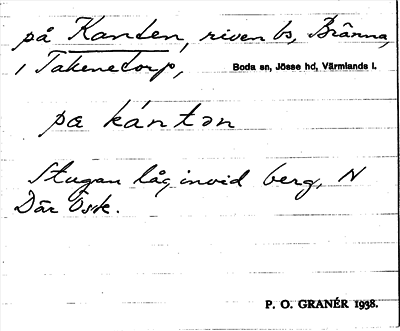 på Kanten, riven bs, Bränna,
i Takenetorp, Boda sn, Jösse hd, Värmlands l.
pa kántən
Stugan låg invid berg, N
Där Osk.
P. O. GRANÉR 1938.